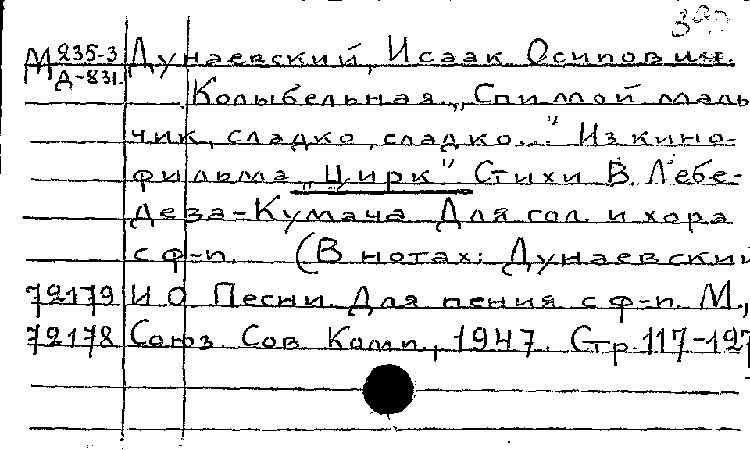 М 235-3 Дунаевский, Исаак Осипович.
Д-831.
Колыбельная „Спи мой маль
чик, сладко, сладко..." Из кино-
фильма „Цирк" Стихи В. Лебе-
дева-Кумача Для гол. и хора
с ф-п. (В нотах: Дунаевский
72179 И О. Песни. Для пения с ф-п. М.,
72178 Союз Сов Комп., 1947. Стр 117-127